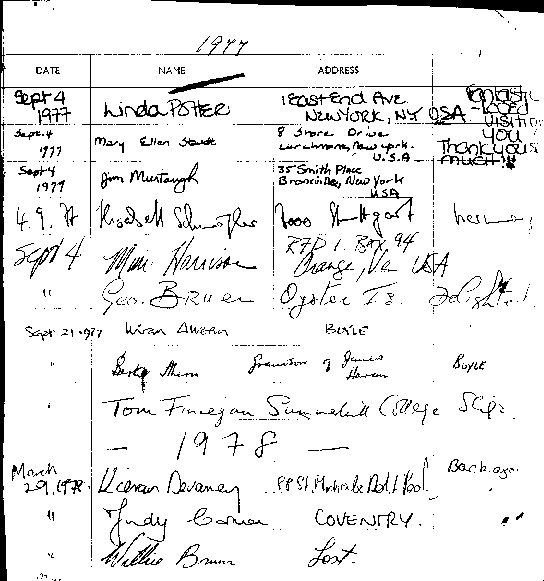 1977
DATE NAME ADDRESS
Sept 4 1977 Linda POTTER 1 East End Ave New York, NY USA Fantastic Loved visiting you Thank you so much!!!
Sept. 4 1977 Mary Ellen 8 Shore Drive Larchmont, New York. U.S.A.
Sept 4 1977 Jim Murtaugh 35 Smith Place Bronxville, New York USA
4.9.77 7000 Stuttgart
Sept 4 Mimi Harrison RFD 1. Box 94 Orange, USA
" Geo. Bruen Oyster Is. Delighted!
Sept 21.1977 BOYLE
" Grandson of James BOYLE
" Tom Finnegan Summerhill College Sligo.
— 1978 —
March 29, 1978. Kieran Devaney 88 St. Rd. L'Pool. Back again
" Judy COVENTRY.
" Willie Lost.